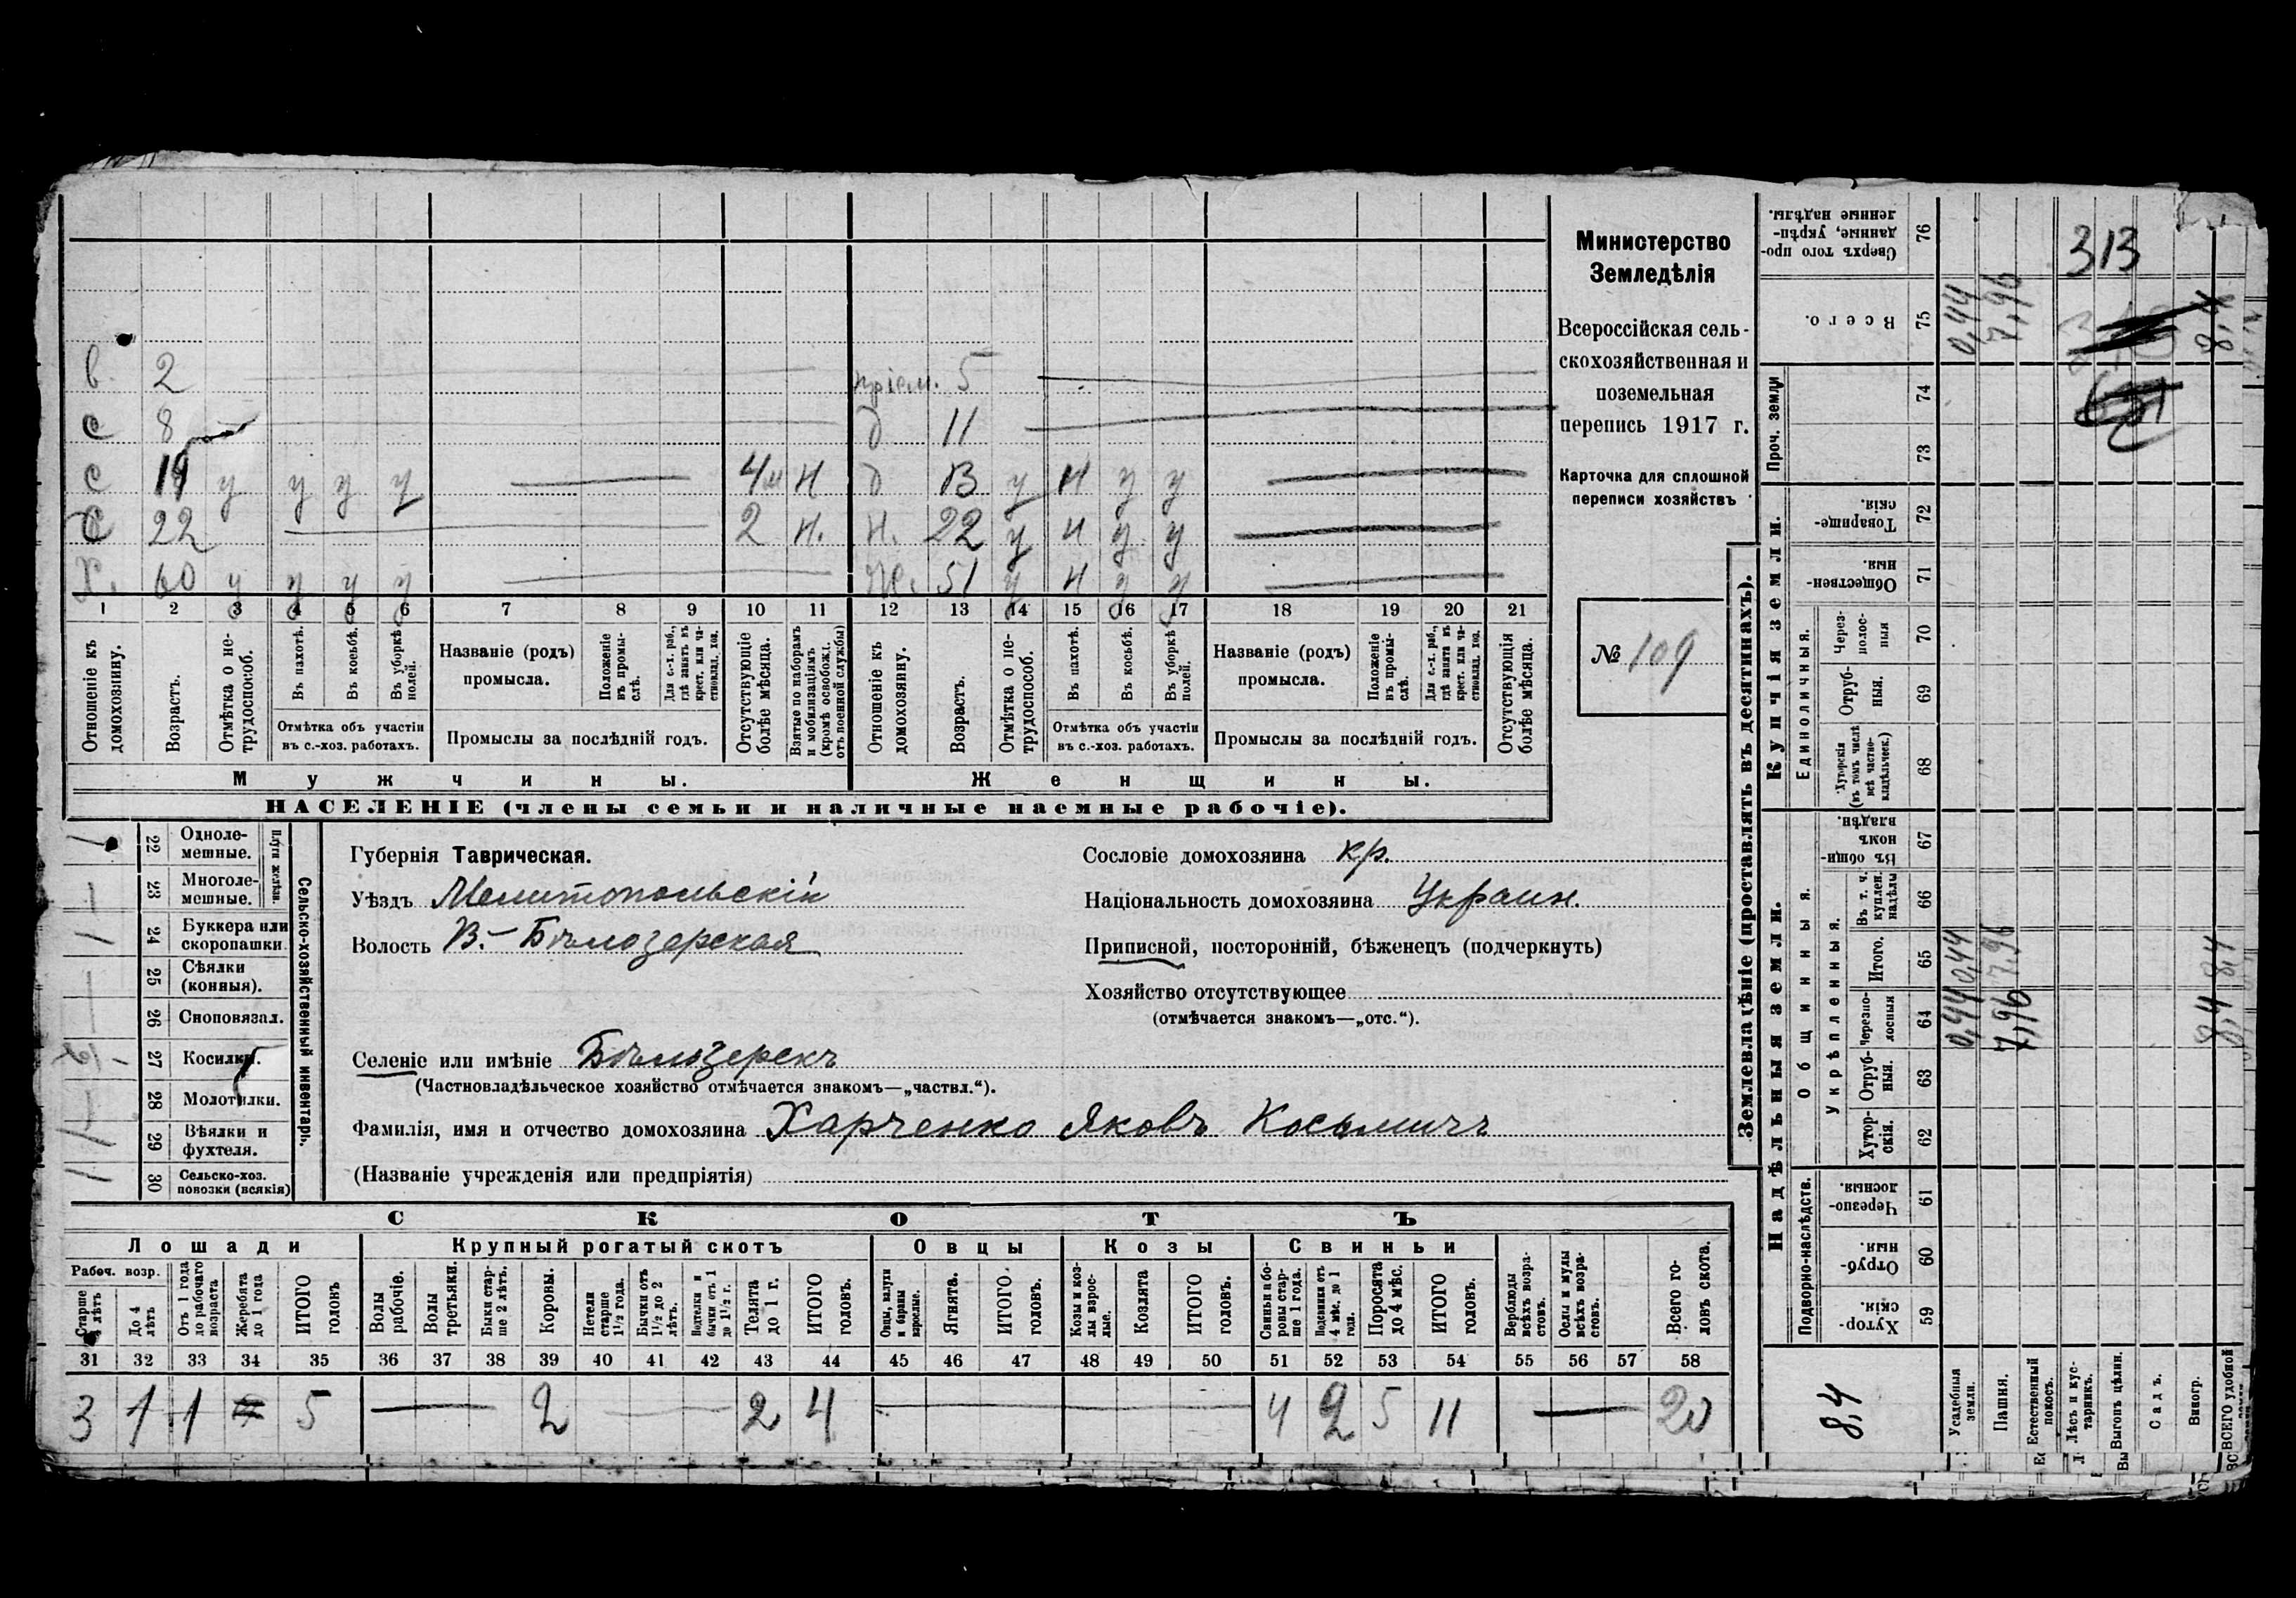 в. 2 пріем. 5
с 8 д 11
с 19 у у у у 4м н д 13 у н у у
с 22 2 н. н. 22 у н у у
Х. 60 у у у у Ж. 51 у н у у
1 2 3 4 5 6 7 8 9 10 11 12 13 14 15 16 17 18 19 20 21
Отношеніе къ домохозяину.
Возрастъ.
Отмѣтка о не-трудоспособ.
Въ пахотѣ.
Въ косьбѣ.
Въ уборкѣ полей.
Отмѣтка объ участіи
въ с.-хоз. работахъ.
Названіе (родъ)
промысла.
Положеніе въ промы-слѣ.
Для с.-х. раб., гдѣ занятъ въ крест. или ча-стновлад. хоз.
Промыслы за послѣдній годъ.
Отсутствующіе болѣе мѣсяца.
Взятые по наборамъ и мобилизаціямъ (кромѣ освобожд. отъ военной службы)
Отношеніе къ домохозяину.
Возрастъ.
Отмѣтка о не-трудоспособ.
Въ пахотѣ.
Въ косьбѣ.
Въ уборкѣ полей.
Отмѣтка объ участіи
въ с.-хоз. работахъ.
Названіе (родъ)
промысла.
Положеніе въ промы-слѣ.
Для с.-х. раб., гдѣ занята въ крест. или ча-стновлад. хоз.
Промыслы за послѣдній годъ.
Отсутствующія болѣе мѣсяца.
Мужчины. Женщины.
НАСЕЛЕНІЕ (члены семьи и наличные наемные рабочіе).
Министерство
Земледѣлія
Всероссійская сель-
скохозяйственная и
поземельная
перепись 1917 г.
Карточка для сплошной
переписи хозяйствъ
№ 109
22 Одноле-мешные.
23 Многоле-мешные.
Плуги желѣзн.
24 Буккера или скоропашки.
25 Сѣялки (конныя).
26 Сноповязал.
27 Косилки.
28 Молотилки.
29 Вѣялки и фухтеля.
30 Сельско-хоз. повозки (всякія)
Сельско-хозяйственный инвентарь.
Губернія Таврическая.
Уѣздъ Мелитопольскій
Волость В.-Бѣлозерская
Селеніе или имѣніе Бѣлозерскъ
(Частновладѣльческое хозяйство отмѣчается знакомъ—„частвл.“).
Фамилія, имя и отчество домохозяина Харченко Яковъ Косьмичъ
(Названіе учрежденія или предпріятія)
Сословіе домохозяина кр.
Національность домохозяина Украин.
Приписной, посторонній, бѣженецъ (подчеркнуть)
Хозяйство отсутствующее
(отмѣчается знакомъ—„отс.“).
СКОТЪ
Лошади Крупный рогатый скотъ Овцы Козы Свиньи
Рабоч. возр.
Старше 4 лѣтъ
До 4 лѣтъ
Отъ 1 года до рабочаго возраста
Жеребята до 1 года
ИТОГО головъ
Волы рабочіе.
Волы третьяки.
Быки стар-ше 2 лѣтъ.
Коровы.
Нетели старше 1½ года.
Бычки отъ 1½ до 2 лѣтъ.
Подтелки и бычки отъ 1 до 1½ г.
Телята до 1 г.
ИТОГО головъ.
Овцы, валухи и бараны взрослые.
Ягнята.
ИТОГО головъ.
Козы и коз-лы взрос-лые.
Козлята
ИТОГО головъ.
Свиньи и бо-ровы стар-ше 1 года.
Подсвинки отъ 4 мѣс. до 1 года.
Поросята до 4 мѣс.
ИТОГО головъ.
Верблюды всѣхъ возра-стовъ.
Ослы и мулы всѣхъ возра-стовъ.
Всего го-ловъ скота.
31 32 33 34 35 36 37 38 39 40 41 42 43 44 45 46 47 48 49 50 51 52 53 54 55 56 57 58
3 1 1 5 2 2 4 4 2 5 11 20
Землевладѣніе (проставлять въ десятинахъ).
Надѣльныя земли. Купчія земли. Проч. земли
Подворно-наслѣдств.
Общинныя.
Укрѣпленныя.
Единоличныя.
59 Хутор-скія.
60 Отруб-ныя.
61 Черезпо-лосныя.
62 Хутор-скія.
63 Отруб-ныя.
64 Черезпо-лосныя
65 Итого.
66 Въ т. ч. куплен. надѣлы
67 Въ общин-номъ владѣн.
68 Хуторскія (въ томъ числѣ всѣ частно-владѣльческ.)
69 Отруб-ныя.
70 Через-полос-ныя
71 Обществен-ныя.
72 Товарище-скія.
73
74
75 Всего.
76 Сверхъ того про-данные, укрѣп-ленные надѣлы.
8,4
Усадебныя земли. 0,44 0,44 0,44
Пашня. 7,96 7,96 7,96
Естественный покосъ.
Лѣсъ и кус-тарникъ.
Выгонъ цѣлин.
Садъ.
Виногр.
ВСЕГО удобной 8,4 8,4 8,4
313